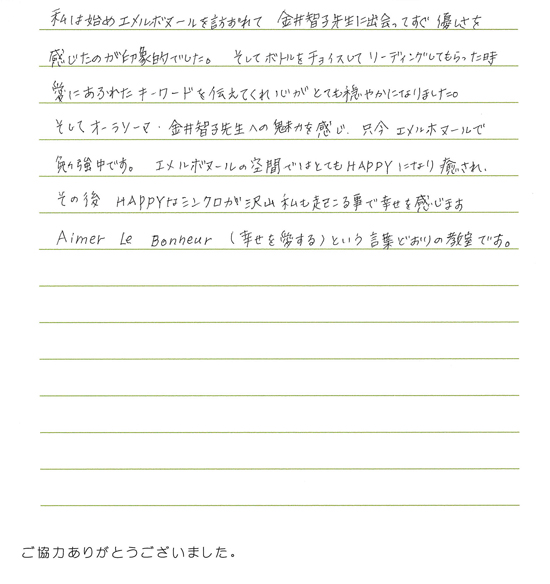 私は始めエメルボヌールを訪がれて 金井智子先生に出会ってすぐ優しさを
感じたのが印象的でした。 そしてボトルをチョイスしてリーディングしてもらった時
愛にあふれたキーワードを伝えてくれ心がとても穏やかになりました。
そしてオーラソーマ・金井智子先生への魅力を感じ、只今エメルボヌールで
勉強中です。 エメルボヌールの空間ではとてもHAPPYになり癒され、
その後 HAPPYなシンクロが沢山私も起こる事で幸せを感じます
Aimer Le Bonheur (幸せを愛する)という言葉どおりの教室です。
ご協力ありがとうございました。